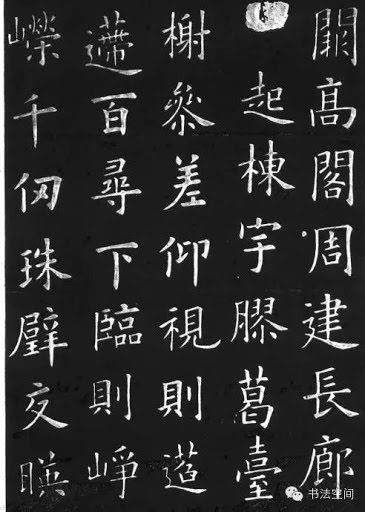 闕高閣周建長廊
起棟宇膠葛臺
榭參差仰視則迢
遰百尋下臨則崢
嶸千仞珠璧交暎
书法空间